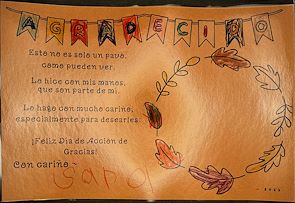 AGRADECIDO
Este no es solo un pavo,
como pueden ver.
Lo hice con mis manos,
que son parte de mi.
Lo hago con mucho cariño,
especialmente para desearles:
¡Feliz Día de Acción de
Gracias!
Con cariño